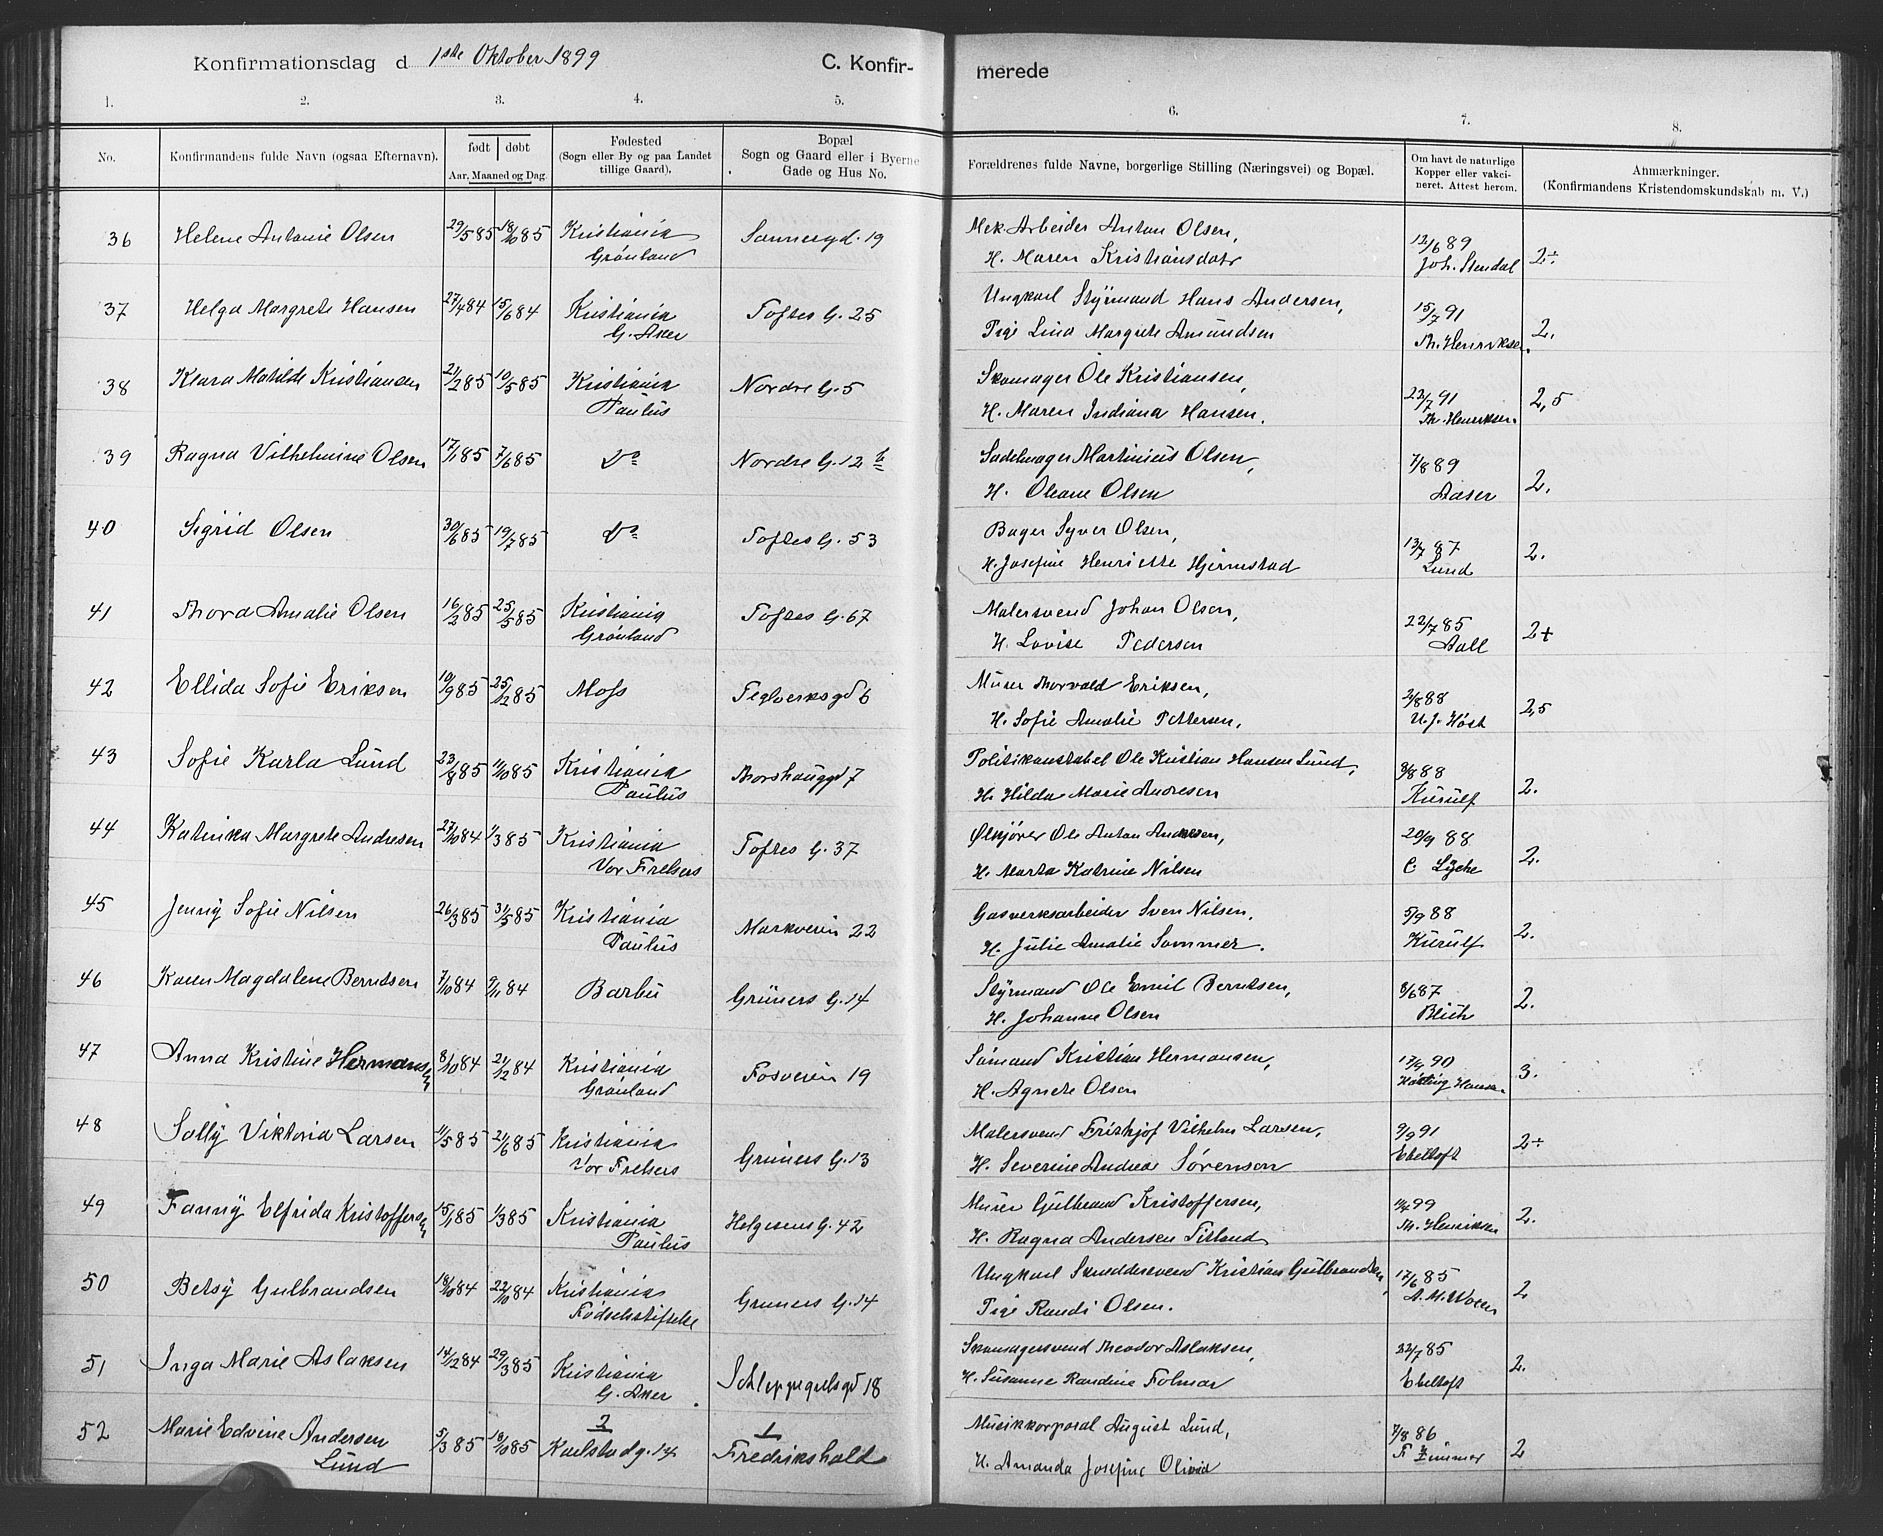 Konfirmationsdag d 1ste Oktober 1899 C. Konfir- merede
1. 2. 3. 4. 5. 6. 7. 8.
No. Konfirmandens fulde Navn (ogsaa Efternavn). født døbt Aar, Maaned og Dag. Fødested (Sogn eller By og paa Landet tillige Gaard). Bopæl Sogn og Gaard eller i Byerne Gade og Hus No. Forældrenes fulde Navne, borgerlige Stilling (Næringsvei) og Bopæl. Om havt de naturlige Kopper eller vakcineret. Attest herom. Anmærkninger. (Konfirmandens Kristendomskundskab m. V.)
36 Helene Antonie Olsen 29/5 85 18/10 85 Kristiania Sannergd. 19 Mek. Arbeider Anton Olsen, 12/6 89
Grönland H. Maren Kristiansdatr Joh. Stendal 2÷
37 Helga Margrete Hansen 27/4 84 15/6 84 Kristiania Toftes G. 25 Ungkarl Styrmand Hans Andersen, 15/7 91
G. Aker Pige Lina Margrete Amundsen Th. Henriksen. 2.
38 Klara Matilde Kristiansen 21/2 85 10/5 85 Kristiania Nordre G. 5 Skomager Ole Kristiansen, 22/7 91 2,5
Paulus H. Maren Indiana Hansen. Th. Henriksen
39 Ragna Vilhelmine Olsen 17/1 85 7/6 85 Do Nordre G. 12 b Sadelmager Martinius Olsen, 7/8 89
H. Oleane Olsen Aaser 2.
40 Sigrid Olsen 30/6 85 19/7 85 Do Toftes G. 53 Bager Syver Olsen, 13/7 87
H. Josefine Henriette Hjermstad Lund 2.
41 Thora Amalie Olsen 16/2 85 25/5 85 Kristiania Toftes G. 67 Malersvend Johan Olsen, 22/7 85
Grönland H. Lovise Pedersen Aall 2+
42 Ellida Sofie Eriksen 10/9 85 25/12 85 Moss Teglverksgd 6 Murer Thorvald Eriksen, 2/8 88
H. Sofie Amalie Pettersen, U. J. Höst 2,5
43 Sofie Karla Lund 23/8 85 11/10 85 Kristiania Thorshauggd 7 Politikonstabel Ole Kristian Hansen Lund, 3/8 88
Paulus H. Hilda Marie Andresen Kurulf 2.
44 Katinka Margrete Andresen 27/10 84 1/3 85 Kristiania Toftes G. 37 Ølkjører Ole Anton Andresen, 20/9 88
Vor Frelsers H. Marta Katrine Nilsen C Lyche 2.
45 Jenny Sofie Nilsen 26/3 85 31/5 85 Kristiania Markveien 22 Gasverksarbeider Sven Nilsen, 5/9 88
Paulus H. Julie Amalie Sommer. Kurulf 2.
46 Karen Magdalene Berntsen 7/10 84 9/11 84 Barbu Grüners G. 14 Styrmand Ole Emil Berntsen, 8/6 87
H. Johanne Olsen Blich 2.
47 Anna Kristine Hermansen 8/10 84 21/12 84 Kristiania Fosveien 19 Sömand Kristian Hermansen, 17/9 90
Grönland H. Agnete Olsen Hansen 3.
48 Solly Viktoria Larsen 11/5 85 21/6 85 Kristiania Grüners G. 13 Malersvend Frithjof Vilhelm Larsen, 9/9 91
Vor Frelsers H. Severine Andrea Sørensen Ebeltoft 2÷
49 Fanny Elfrida Kristoffersen 15/1 85 1/3 85 Kristiania Helgesens G. 42 Murer Gulbrand Kristoffersen, 99
Paulus H. Ragna Andersen Th. Henriksen 2.
50 Betsy Gulbrandsen 18/10 84 22/10 84 Kristiania Grüners G. 14 Ungkarl Skræddersvend Kristian Gulbrandsen, 17/6 85
Födselsstiftelse Pige Randi Olsen. 2
51 Inga Marie Aslaksen 14/12 84 29/3 85 Kristiania Schleppegrelsgd 18 Skomagersvend Theodor Aslaksen, 22/7 85
G. Aker H. Susanne Randine Folmar Ebeltoft 2.
52 Marie Edvine Andersen 5/3 85 18/10 85 2 Karlstadg. 14 1 Fredrikshald Musikkorporal August Lund, 7/8 86
Lund H. Amanda Josefine Olivia 2